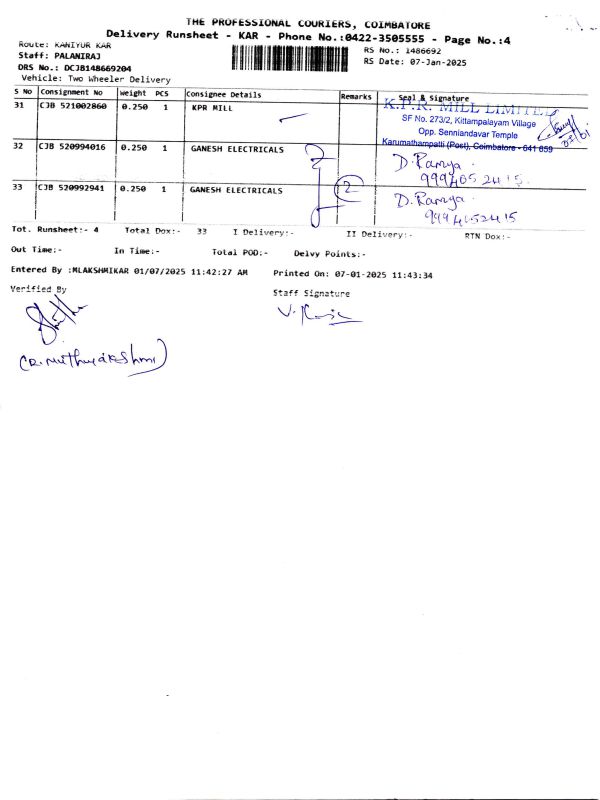 THE PROFESSIONAL COURIERS, COIMBATORE
Delivery Runsheet - KAR - Phone No.:0422-3505555 - Page No.:4
Route: KANIYUR KAR
RS No.: 1486692
Staff: PALANIRAJ
RS Date: 07-Jan-2025
DRS No.: DCJB148669204
Vehicle: Two Wheeler Delivery
S No Consignment No Weight PCS Consignee Details Remarks Seal & Signature
31 CJB 521002860 0.250 1 KPR MILL
K.P.R. MILL LIMITED
SF No. 273/2, Kittampalayam Village
Opp. Senniandavar Temple
Karumathampatti (Post), Coimbatore - 641 659
32 CJB 520994016 0.250 1 GANESH ELECTRICALS
D. Ramya
9994052415
33 CJB 520992941 0.250 1 GANESH ELECTRICALS 2
D. Ramya
9994052415
Tot. Runsheet:- 4 Total Dox:- 33 I Delivery:- II Delivery:- RTN Dox:-
Out Time:- In Time:- Total POD:- Delvy Points:-
Entered By :MLAKSHMIKAR 01/07/2025 11:42:27 AM Printed On: 07-01-2025 11:43:34
Verified By
Staff Signature
(R. Muthulakshmi)